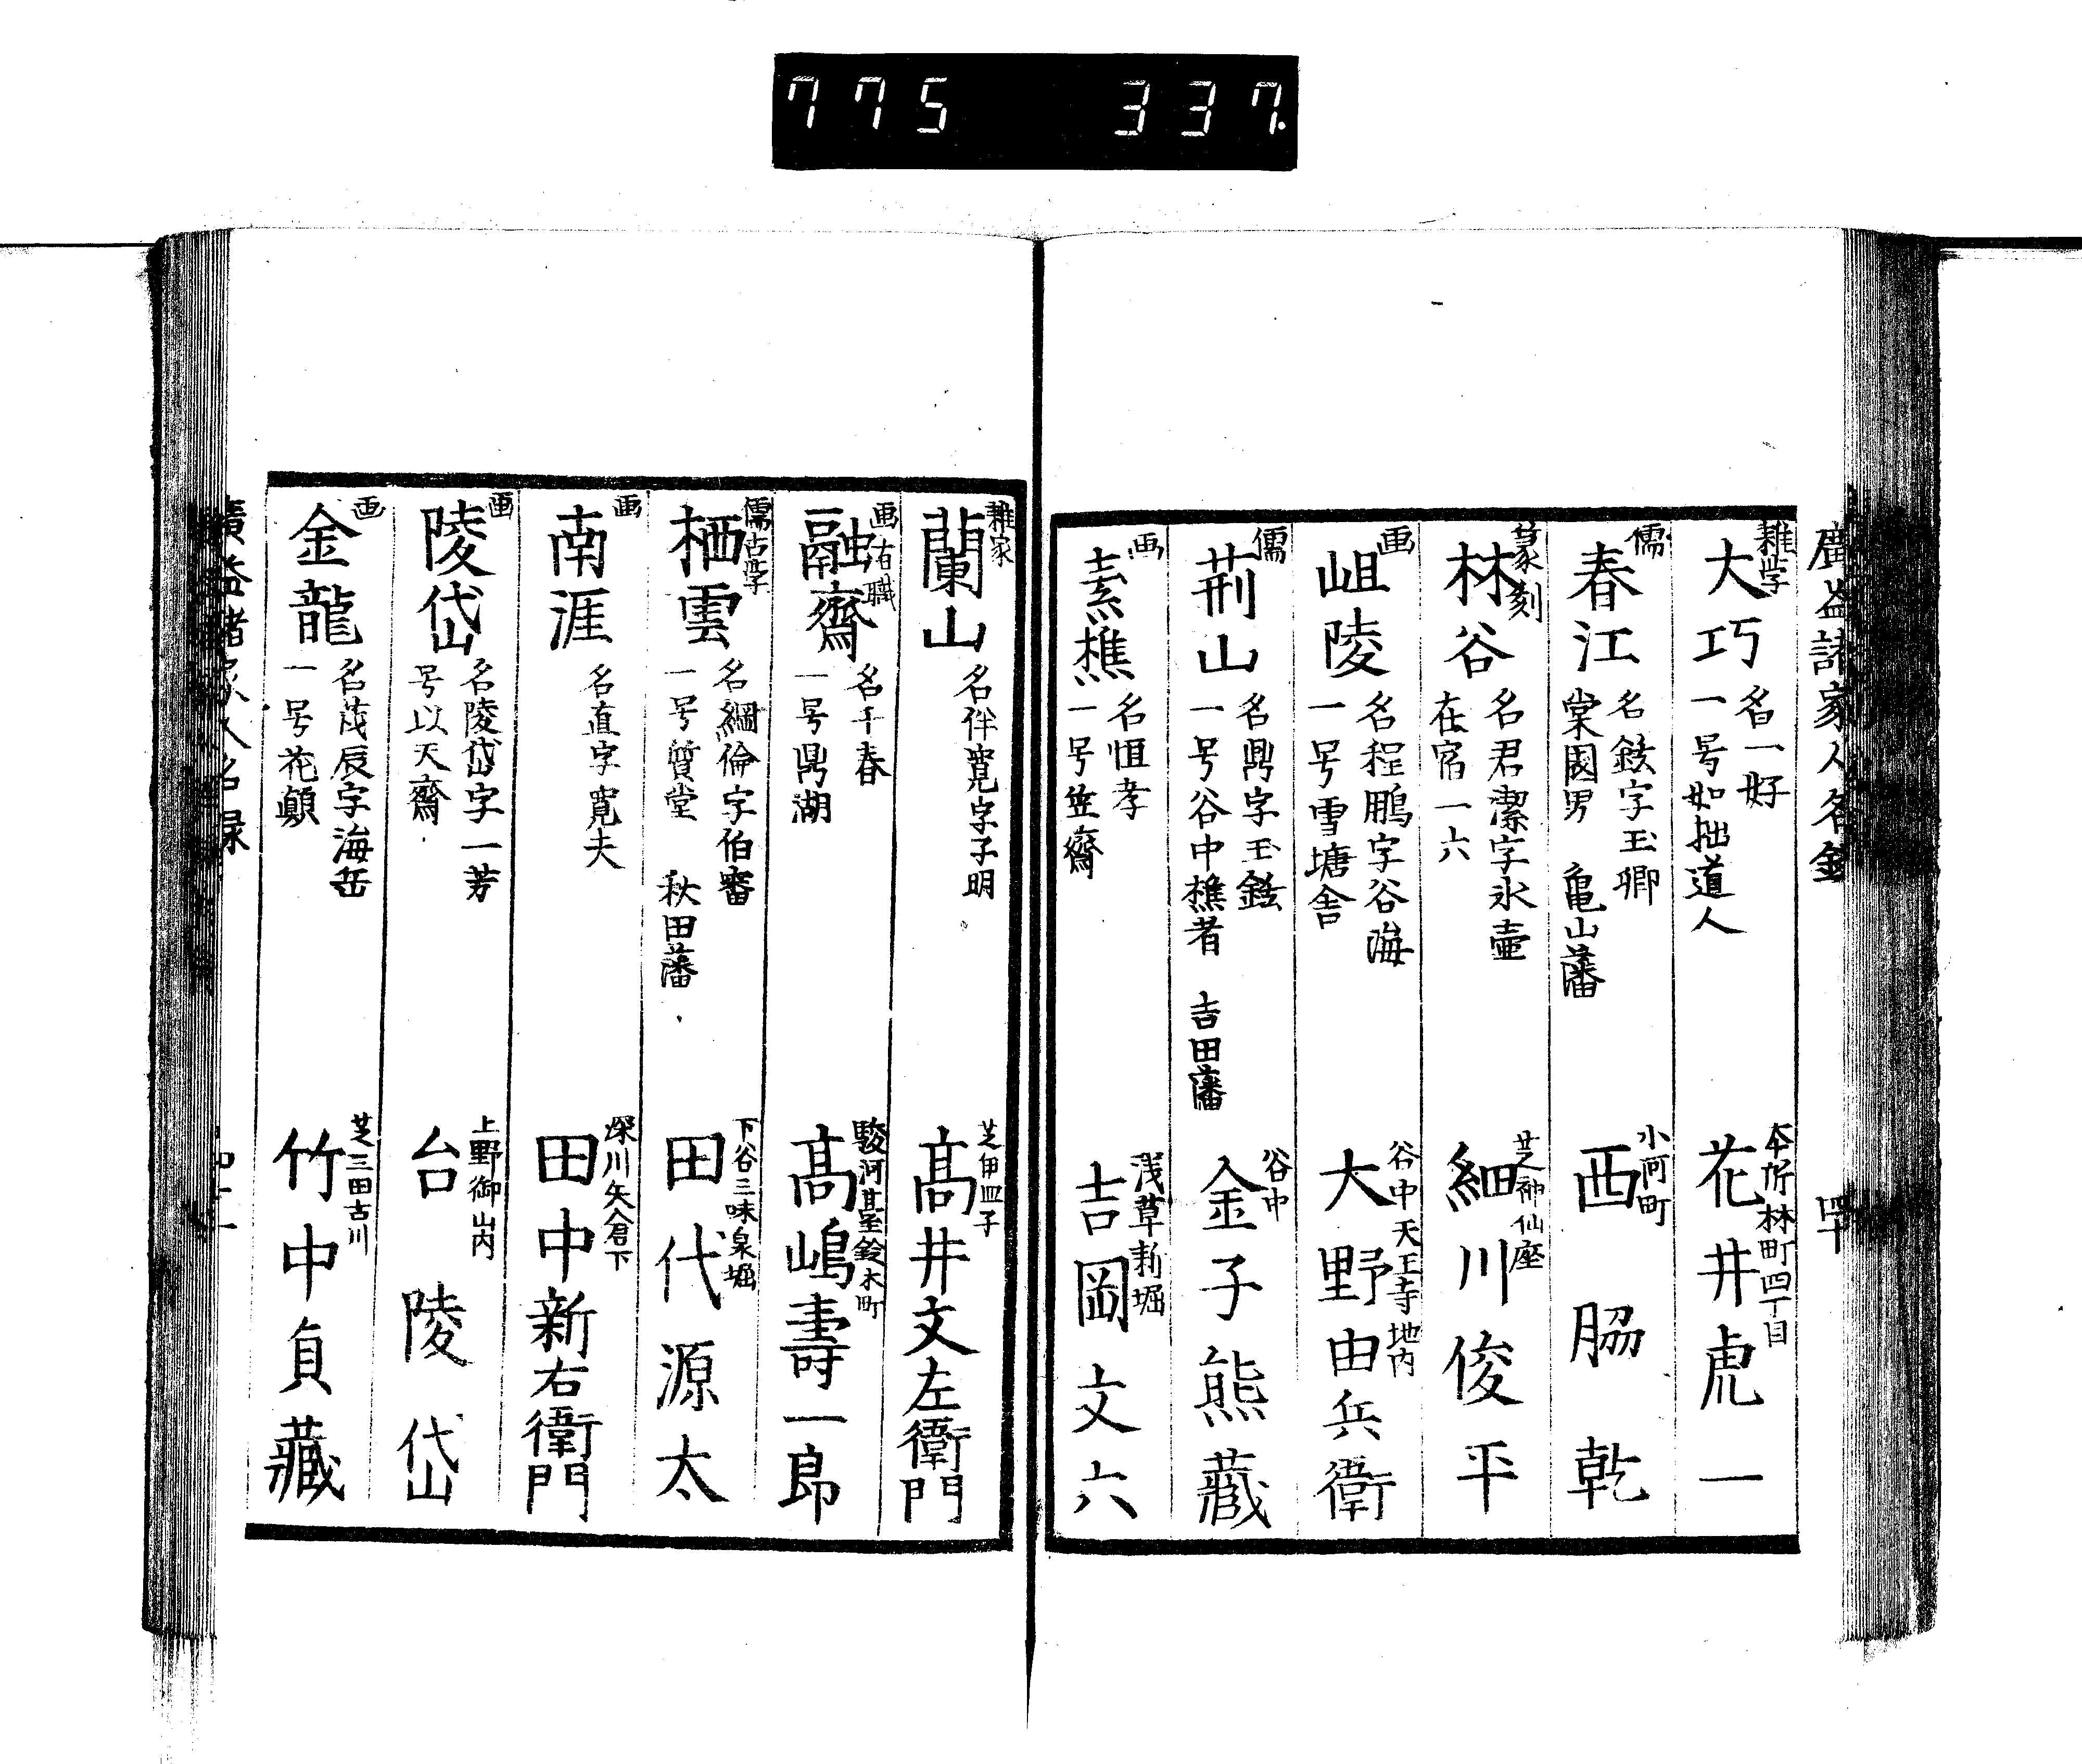 775 337.
廣益諸家人名録
四十
雑学
大巧
名一好
一号如拙道人
本所林町四丁目
花井虎一
儒
春江
名鉉字玉卿
棠園男 亀山藩
小河町
西脇乾
篆刻
林谷
名君潔字氷壷
在宿一六
芝神仙座
細川俊平
画
岨陵
名程鵬字谷海
一号雪塘舎
谷中天王寺地内
大野由兵衛
儒
荊山
名鼎字玉鉉
一号谷中樵者 吉田藩
谷中
金子熊藏
画
素樵
名恒孝
一号笠齋
浅草新堀
吉岡文六
雑家
蘭山
名伴寛字子明
芝伊皿子
髙井文左衛門
画有職
融齋
名千春
一号鼎湖
駿河臺鈴木町
髙嶋壽一郎
儒古学
栖雲
名綱倫字伯審
一号質堂 秋田藩
下谷三味泉堀
田代源太
画
南涯
名直字寛夫
深川矢倉下
田中新右衛門
画
陵岱
名陵岱字一芳
号以天齋
上野御山内
台陵岱
画
金龍
名茂辰字海岳
一号花顛
芝三田古川
竹中貞藏
廣益諸家人名録